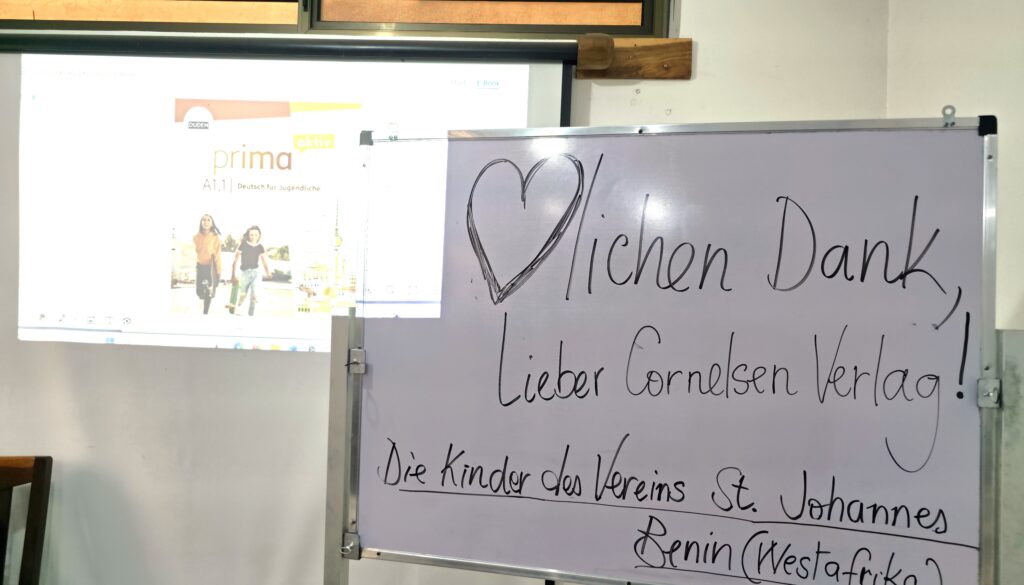 DUDEN
aktiv
prima
A1.1 | Deutsch für Jugendliche
lichen Dank,
Lieber Cornelsen Verlag!
Die Kinder des Vereins St. Johannes
Benin (Westafrika)